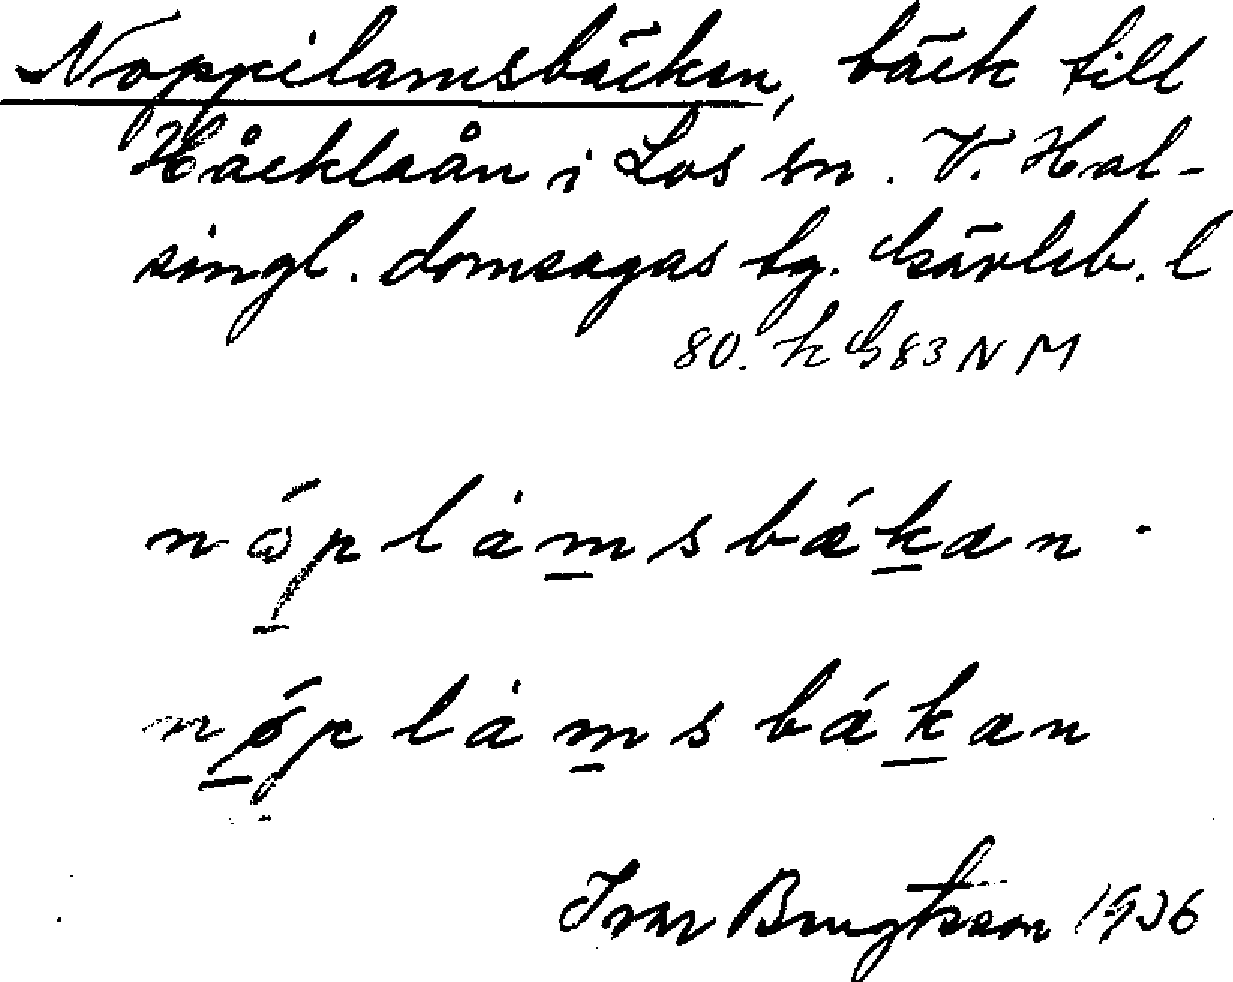 Noppilamsbäcken, bäck till
Håcklaån i Los sn. V. Häl-
singl. domsagas tg. Gävleb. l
80. h G 83 N M
nöplamsbäkan
nöplamsbäkan
Ivar Bengtsson 1936